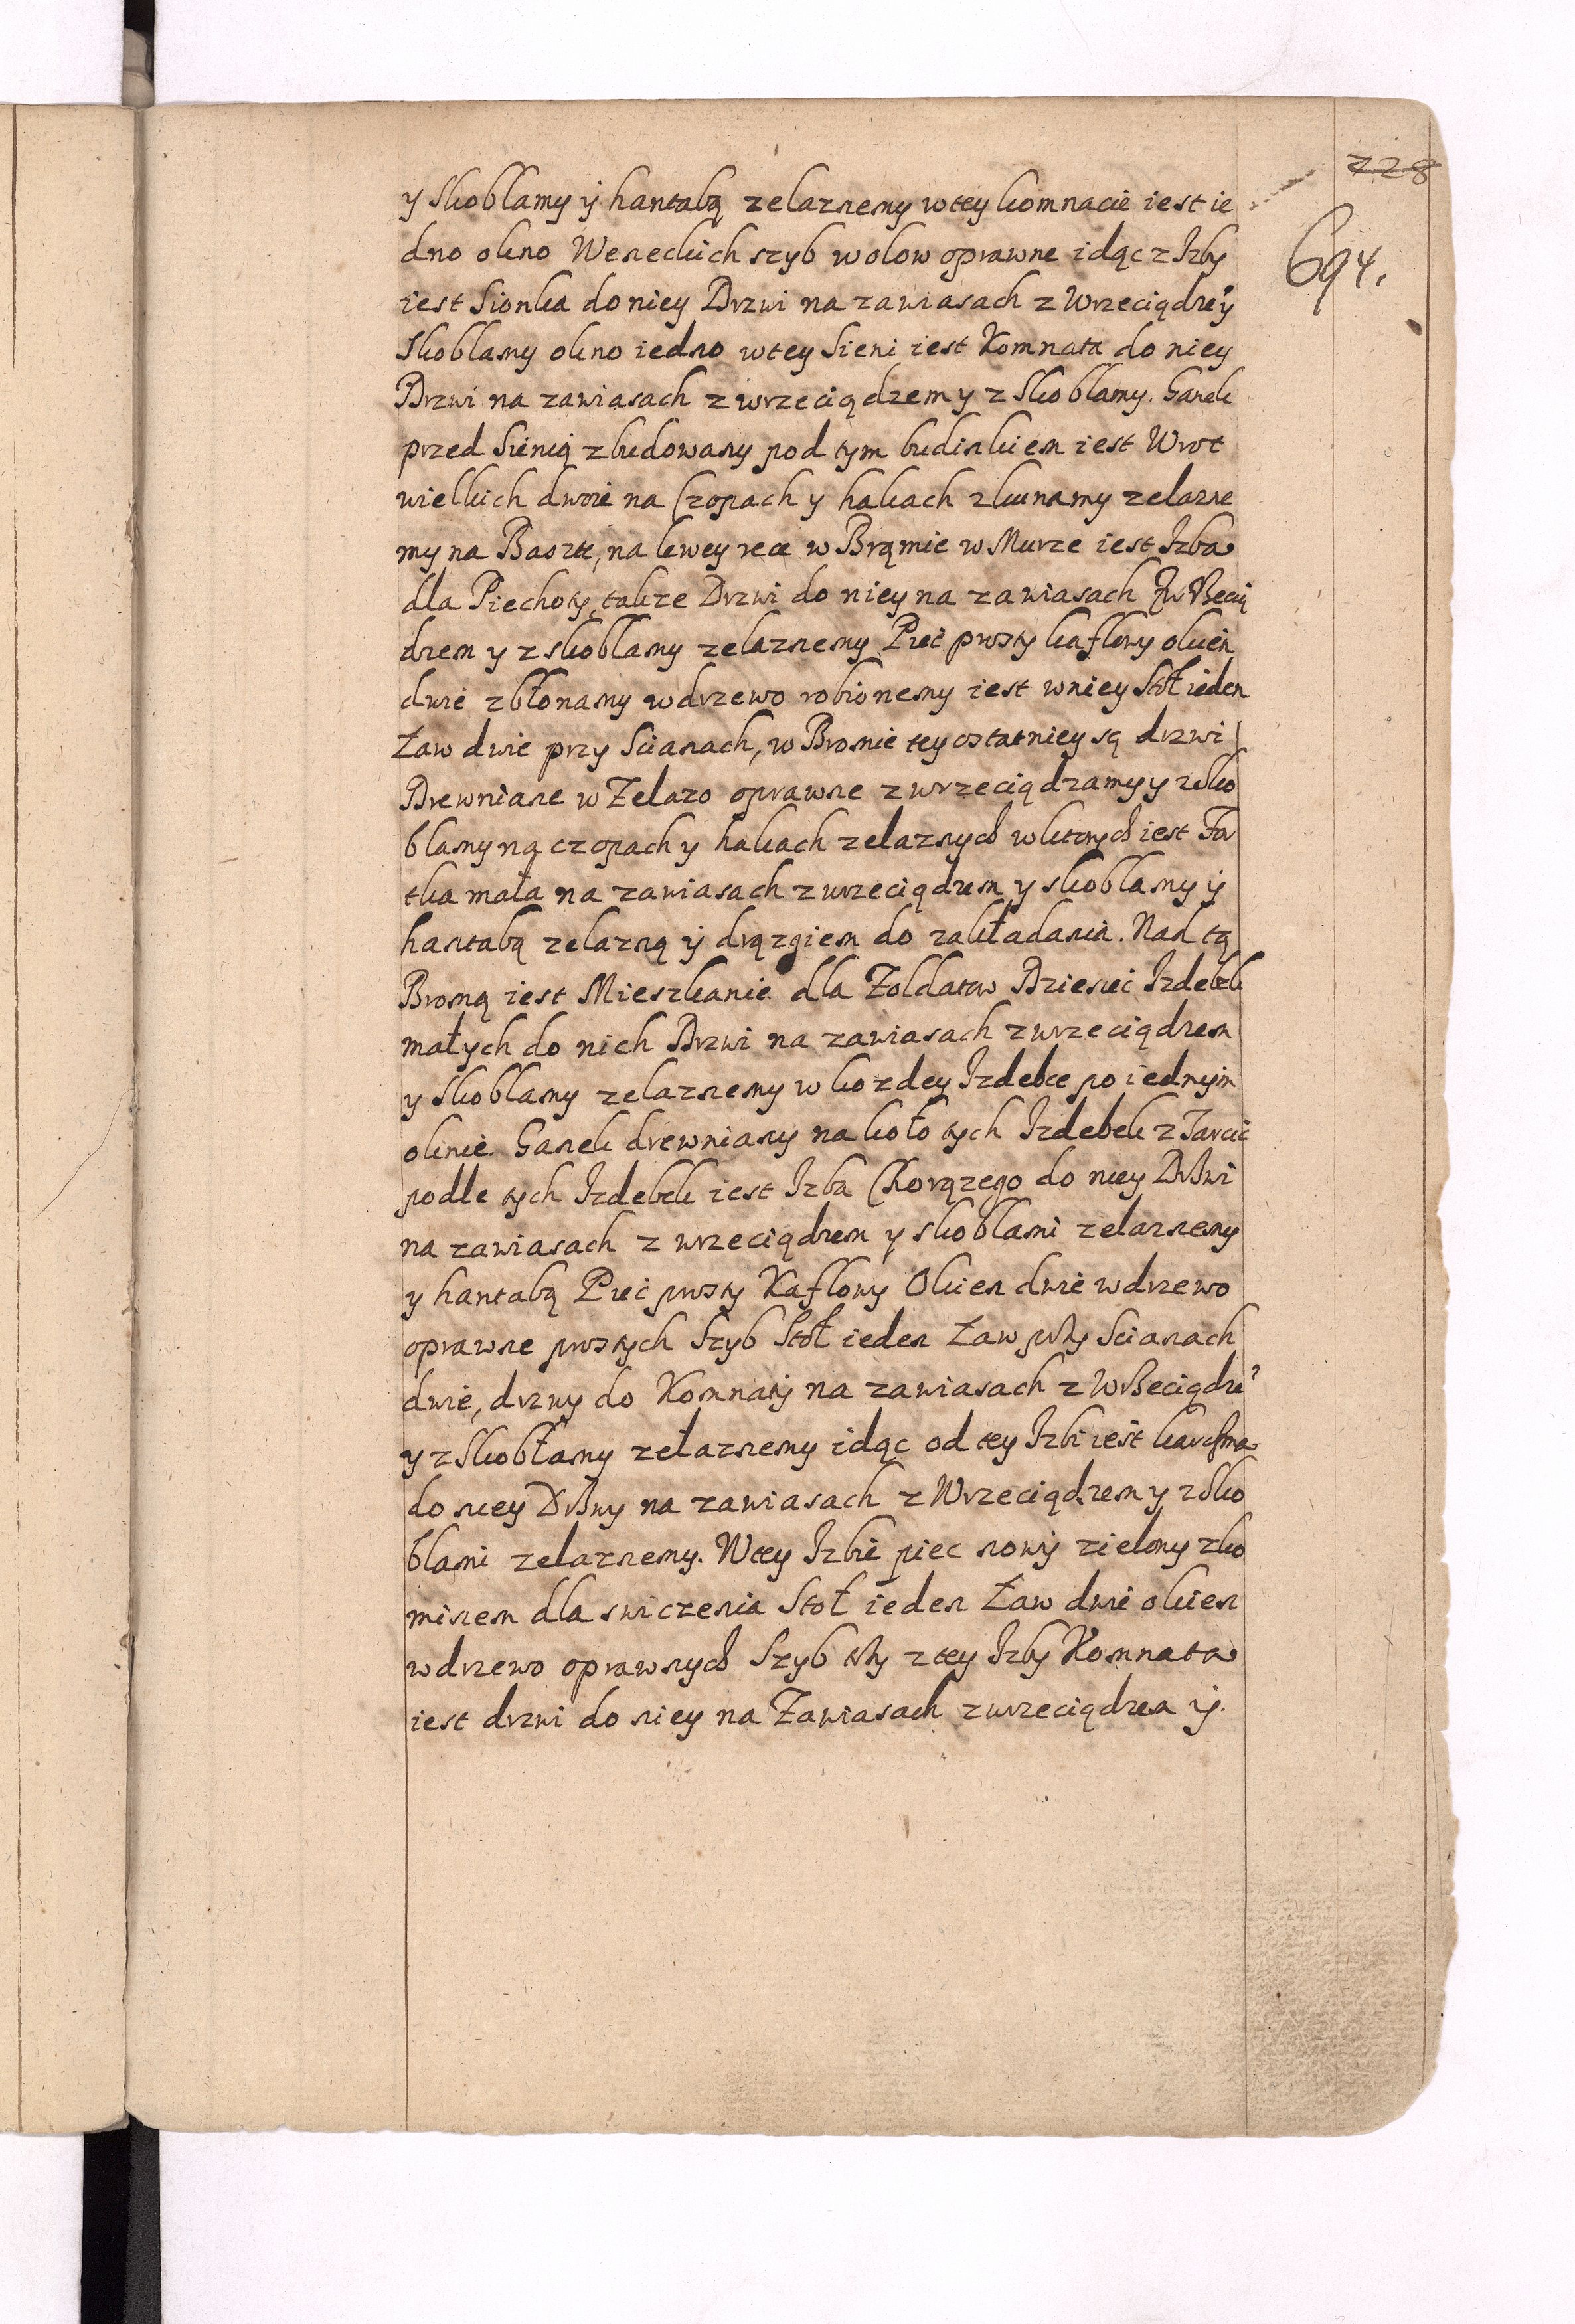 228
694.
y Skoblamy ÿ hantabą zelaznemy wtey komnacie iest ie
dno okno Weneckich szyb wolow oprawne idąc z Izby
iest Sionka do niey Drzwi na zawiasach z Wrzeciądzẽ ÿ
Skoblamy okno iedno wtey Sieni iest Komnata do niey
Drzwi na zawiasach z wrzeciądzem y z Skoblamy. Ganek
przed Sienią zbudowany pod tym budinkiem iest Wrot
wielkich dwoie na Czopach y hakach z kunamy zelazne
my na Baszte, na lewey rece w Brąmie w Murze iest Izba
dla Piechoty, takze Drzwi do niey na zawiasach Zwrzecią
dzem y z skoblamy zelaznemy Piec prosty kaflowy okien
dwie z błonamy wdrzewo robionemy iest wniey Stół ieden
Ław dwie przy Scianach, w Bromie tey ostatniey są drzwi
Drewniane w Zelazo oprawne z wrzeciądzamy y z sko
blamy ną czopach y hakach zelaznych w ktorych iest Fo
tka mała na zawiasach z wrzeciądzem y skoblamy ÿ
hantabą zelazną ÿ drązgiem do zakładania. Nad tą
Bromą iest Mieszkanie dla Zoldatow Dziesiec Izdebek
małych do nich Drzwi na zawiasach z wrzeciądzem
y Skoblamy zelaznemy w kozdey Izdebce po iednym
oknie. Ganek drewniany na koło tych Izdebek z Tarcic
podle tych Izdebek iest Izba Chorązego do niey Drzwi
na zawiasach z wrzeciądzem y skoblami zelaznemy
y hantabą Piec prosty Kaflowy Okien dwie wdrzewo
oprawne prostych Szyb Stoł ieden Ław przy Scianach
dwie, drzwy do Komnaty na zawiasach z Wrzeciądzẽ
y z Skobłamy zelaznemy idąc od tey Izbi iest karczma
do niey Drzwy na zawiasach z Wrzeciądzem y z Sko
blami zelaznemy. Wtey Izbie piec nowy zielony z ko
minem dla swiczenia Stoł ieden Ław dwie okien
wdrzewo oprawnych Szyb trzy z tey Izby Komnata
iest drzwi do niey na Zawiasach z wrzeciądzem ÿ.